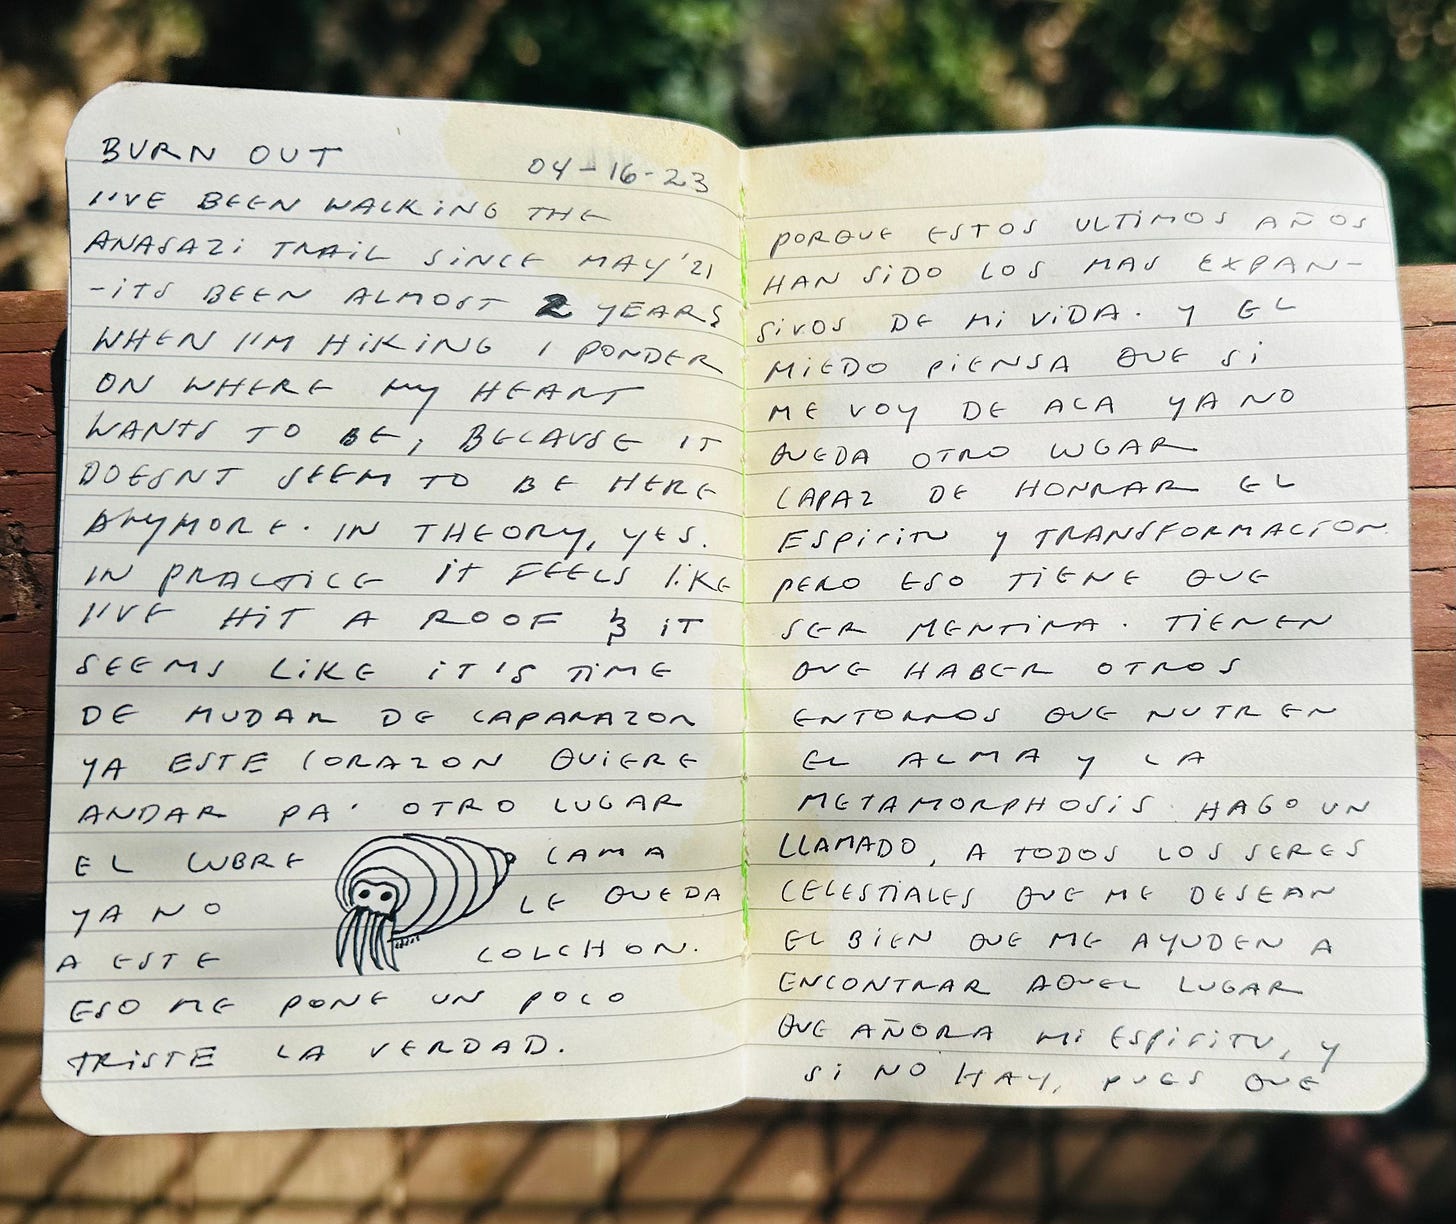 BURN OUT
04-16-23
I'VE BEEN WALKING THE
ANASAZI TRAIL SINCE MAY '21
-ITS BEEN ALMOST 2 YEARS
WHEN I'M HIKING I PONDER
ON WHERE MY HEART
WANTS TO BE, BECAUSE IT
DOESNT SEEM TO BE HERE
ANYMORE. IN THEORY, YES.
IN PRACTICE IT FEELS LIKE
I'VE HIT A ROOF & IT
SEEMS LIKE IT'S TIME
DE MUDAR DE CAPARAZON
YA ESTE CORAZON QUIERE
ANDAR PA' OTRO LUGAR
EL CUBRE CAMA
YA NO LE QUEDA
A ESTE COLCHON.
ESO ME PONE UN POCO
TRISTE LA VERDAD.
PORQUE ESTOS ULTIMOS AÑOS
HAN SIDO LOS MAS EXPAN-
SIVOS DE MI VIDA. Y EL
MIEDO PIENSA QUE SI
ME VOY DE ACA YA NO
QUEDA OTRO LUGAR
CAPAZ DE HONRAR EL
ESPIRITU Y TRANSFORMACION.
PERO ESO TIENE QUE
SER MENTIRA. TIENEN
QUE HABER OTROS
ENTORNOS QUE NUTREN
EL ALMA Y LA
METAMORPHOSIS. HAGO UN
LLAMADO, A TODOS LOS SERES
CELESTIALES QUE ME DESEAN
EL BIEN QUE ME AYUDEN A
ENCONTRAR AQUEL LUGAR
QUE AÑORA MI ESPIRITU, Y
SI NO HAY, PUES QUE